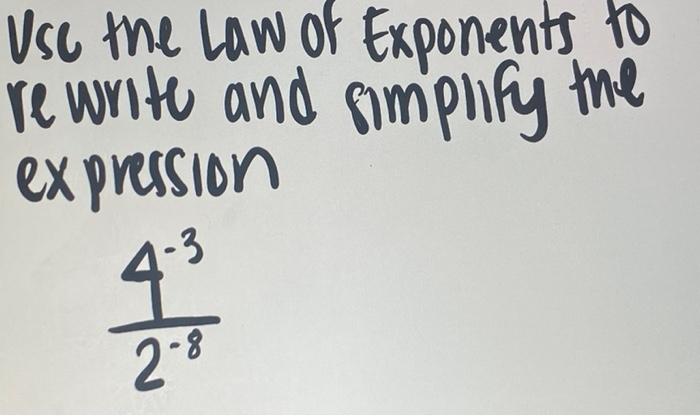 Use the Law of Exponents to
rewrite and simplify the
expression
4^-3
2^-8